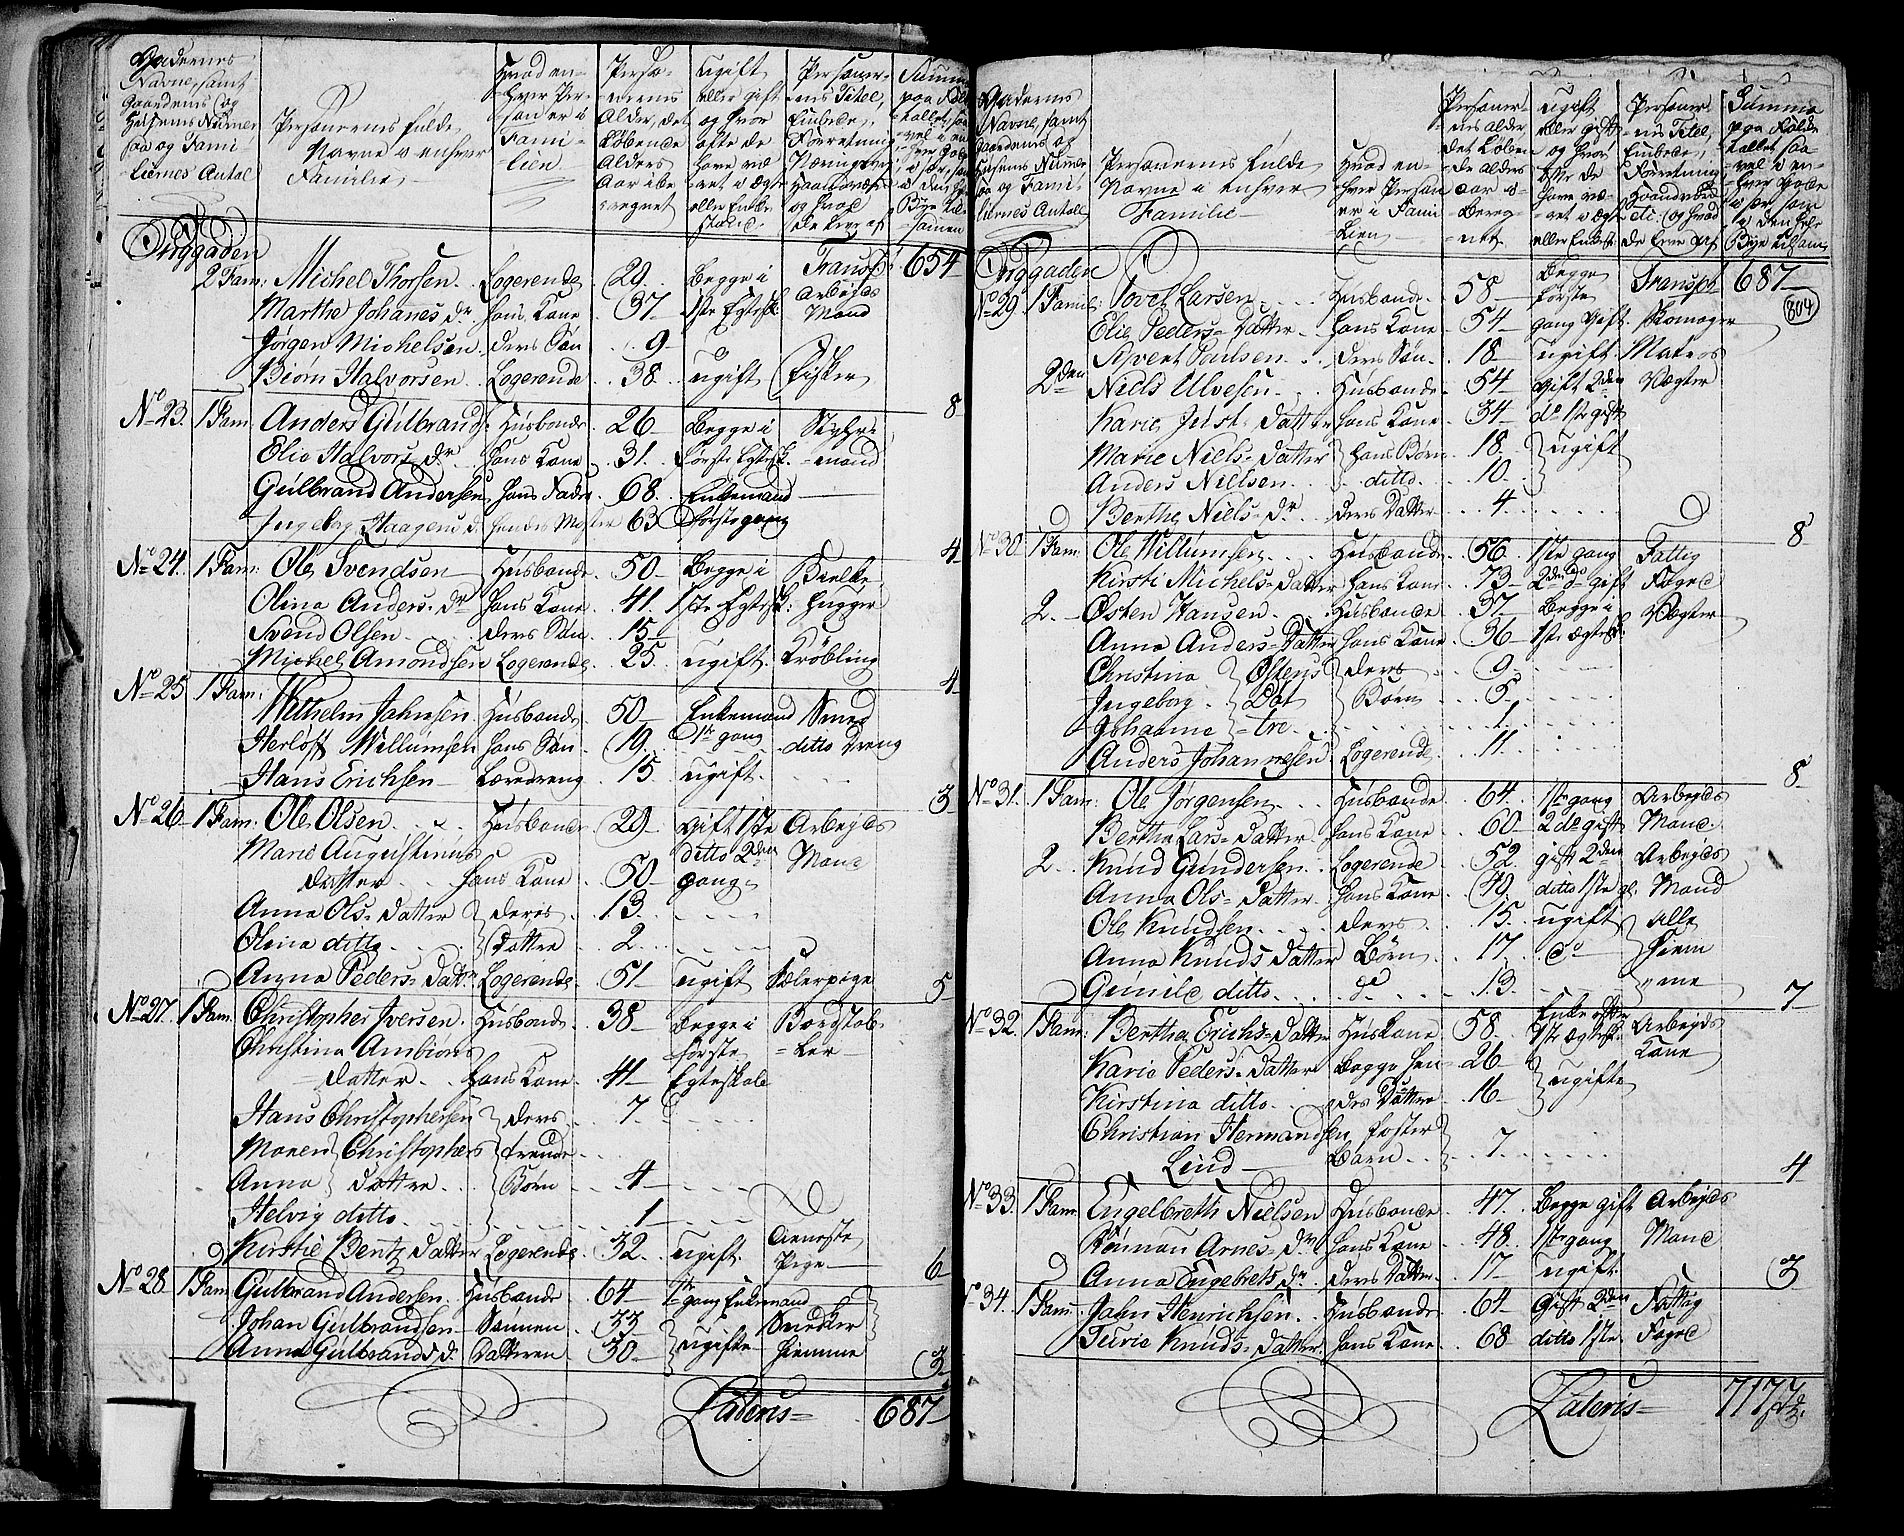 Gadernes
Navne, samt
Gaardenes og
Husenes Numer
saa og Fami-
liernes Antal
Personernes fulde
Navne i enhver
Familie
Hvad en-
hver Per-
son er i
Fami-
lien
Perso-
nernes
Alder, det
løbende
Alders
Aar ibe-
regnet
Ugift
eller gift
og hvor
ofte de
have væ-
ret i Ægte
eller Enke
stand.
Personer-
nes Titel,
Embede,
Forretning
og hvad
de leve af
Summa
paa Folke
Tallet, saa
vel i en-
hver Gade
i sær, som
i den hele
Bye til-
sammen
Torggaden
2 Fam: Michel Thorsen. Logerende 29. Begge i Transp: 654
Marthe Johanes dr. hans Kone 37 1ste Egtesk. Arbejds Mand
Jørgen Michelsen. deres Søn 9
Biørn Halvorsen. Logerende. 38. ugift Fisker
8
No 23. 1 Fam Anders Gulbrands. Husbonde 26 Begge i Styhr-
Elie Halvors dr. hans Kone 31. første Egtesk. =mand
Gulbrand Andersen hans Fader 68. Enkemand
Ingeborg Haagens d. hendes Moster 63 første gang
4
No 24. 1 Fam: Ole Svendsen Husbonde. 50 Begge i Bielke
Olina Anders. dr hans Kone 41. 1ste Egtesk: hugger
Svend Olsen. deres Søn 15
Michel Amondsen Logerende. 25. ugift. Krøbling
4
No 25 1 Fam: Wilhelm Jahnsen. Husbonde. 50 Enkemand Smed
Herlof Willumsen hans Søn 19. 1te gang ditto Dreng
Hans Erichsen Læredreng 15 ugift.
3
No 26 1 Fam. Ole Olsen. Husbonde 29 Gift 1ste Arbejds
Marie Augustinus
datter. hans Kone 50 ditto 2den gang Mand
Anna Ols= datter deres 13.
Olina ditto. Døttre 2.
Anna Peders= datr. Logerende. 51 ugift
5
No 27. 1 Fam. Christopher Iversen. Husbonde. 38 Begge i
Christina Ambiorns
datter. hans Kone. 41 første Egteskab
Hans Christophersen deres 7
Maren Christophers trende
Anna dottre. Børn 4
Helvig ditto. 1
Kirstie Bentz datter Logerende. 32. ugift. Pige
6
No 28 1 Fam Gulbrand Andersen. Husbonde 64 1te gang Enkemand
Johan Gulbrandsen Sønnen 33 ugifte Snedker
Anna Gulbrands d. Datteren 30 hiemme
3
Lateris= 687
Gadernes
Navne, samt
Gaardenes og
Husenes Numer
saa og Fami-
liernes Antall
Personernes fulde
Navne i enhver
Familie
Hvad en-
hver Person
er i Fami
lien
Personer-
nes Alder
det løben-
de Alders
aar i-
bereg-
net
ugift
eller gift
og hvor
ofte de
have væ-
ret i Ægte
eller Enkest.
Personer
nes Titel,
Embede,
Forretning
de leve af
Summa
paa Folke
Tallet saa
vel i en-
hver Gade
i sær, som
i den hele
Bye tilsam
804
Torggaden
No 29. 1 Famil: Povel Larsen. Husbonde. 58 Begge første Transpt 687
Elie Peders= datter hans Kone 54 gang gift. Skomager
Syvert Paulsen. deres Søn. 18 ugift. Matros
2den Niels Ulvesen. Husbonde. 54 gift 2den Vægter
Karie Just. datter hans Kone. 34 do 1ste gift
Marie Niels= datter hans Børn 18. ugift
Anders Nielsen. ditto. 10.
Berthe Niels= dr. deres datter 4
8
No 30. 1 Fam. Ole Willumsen. Husbonde. 56. 1ste gang Fattig
Kirsti Michels= datter hans Kone. 73 2den do gift Foged
2. Østen Hansen. Husbonde 37 Begge i Vægter
Anna Anders= datter hans Kone 36 1ste Ægtesk.
Christina Østens deres 9.
Ingeborg Dot Børn 5.
Johanne tre. 1.
Anders Johannesen Logerende. 11.
8
No 31. 1 Fam: Ole Jørgensen. Husbonde 64. 1ste gang Arbejds
Berthe Lars= datter. hans Kone 60 2de gift Mand.
2. Knud Gundersen. Logerende 52. gift 2den Arbejds
Anna Ols= datter. hans Kone 49. ditto 1ste g. Mand
Ole Knudsen. deres 15. ugift alle
Anna Knuds datter Børn 17. do hiem
Gunild ditto. do 13. me
7
No 32. 1 Fam: Berthe Erichs= datter Huskone 58. Enke efter 1ste Ægtesk. Arbejds
Karie Peders= datter Begge hen 26 ugifte Kone
Kirstina ditto. des døttre 16
Christian Hermandsen foster
Lind barn 7
4
No 33. 1 Fam. Engelbreth Nielsen Husbonde. 47. Begge gift Arbejds
Rønnau Arnes= dr hans Kone 48. 1ste gang Mand
Anna Engebrets dr. deres datter. 17 ugift.
3
No 34. 1 Fam. Jahn Henrichsen. Husbonde. 64 Gift 2den Fattig
Turie Knuds= datter. hans Kone. 68 ditto 1ste. Foged
Lateris= 717